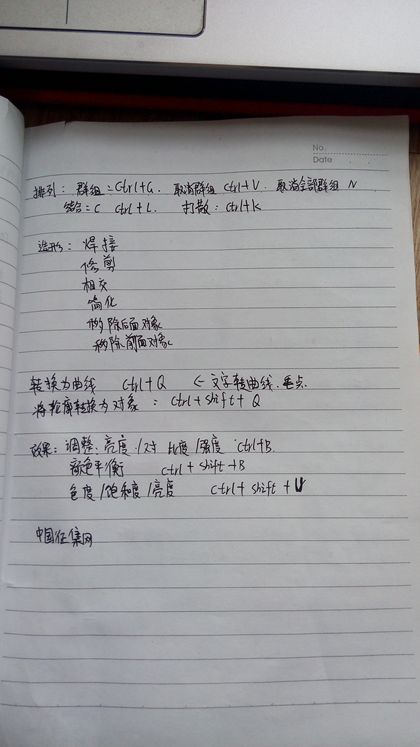 No.
Date
排列: 群组: Ctrl+G. 取消群组 Ctrl+V. 取消全部群组 N
结合: C Ctrl+L. 打散: Ctrl+K
造形: 焊接
修剪
相交
简化
移除后面对象
移除前面对象
转换为曲线 Ctrl+Q ← 文字转曲线. 重点.
将轮廓转换为对象: Ctrl+Shift+Q
效果: 调整: 亮度/对比度/强度 Ctrl+B.
颜色平衡 Ctrl+Shift+B
色度/饱和度/亮度 Ctrl+Shift+U
中国征集网